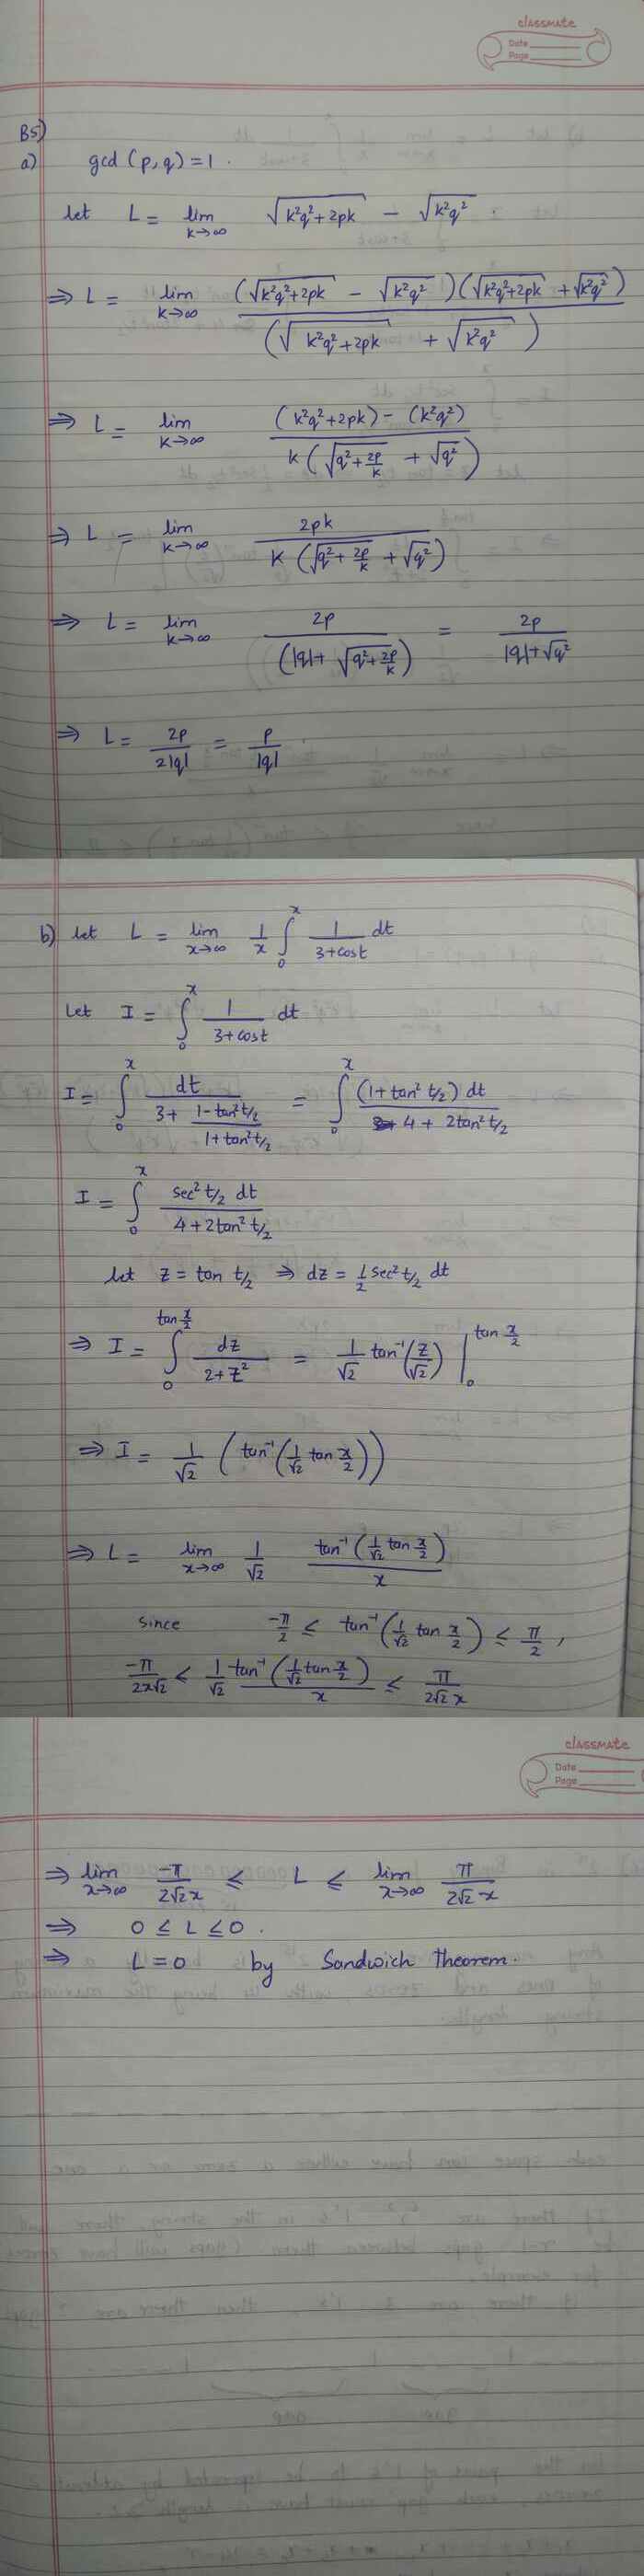 classmate
Date
Page
B5)
a) gcd (p,q) = 1 .
let L = lim k→∞ √(k²q²+2pk) − √(k²q²) .
⇒ L = lim k→∞ (√(k²q²+2pk) − √(k²q²))(√(k²q²+2pk) + √(k²q²)) / (√(k²q²+2pk) + √(k²q²))
⇒ L = lim k→∞ (k²q²+2pk) − (k²q²) / k(√(q²+2p/k) + √q²)
⇒ L = lim k→∞ 2pk / K(√(q²+2p/k) + √q²)
⇒ L = lim k→∞ 2p / (|q|+ √(q²+2p/k)) = 2p / |q|+√q²
⇒ L = 2p/2|q| = p/|q| .
b) let L = lim x→∞ 1/x ∫₀ˣ 1/(3+cost) dt
Let I = ∫₀ˣ 1/(3+cost) dt
I = ∫₀ˣ dt / (3 + (1−tan²t/2)/(1+tan²t/2)) = ∫₀ˣ (1+tan² t/2) dt / 4 + 2tan² t/2
I = ∫₀ˣ sec² t/2 dt / 4+2tan² t/2
let z = tan t/2 ⇒ dz = 1/2 sec² t/2 dt
⇒ I = ∫₀^(tan x/2) dz/(2+z²) = 1/√2 tan⁻¹(z/√2) |₀^(tan x/2)
⇒ I = 1/√2 (tan⁻¹(1/√2 tan x/2))
⇒ L = lim x→∞ 1/√2 tan⁻¹(1/√2 tan x/2) / x
since −π/2 ≤ tan⁻¹(1/√2 tan x/2) ≤ π/2 ,
−π/2x√2 ≤ 1/√2 tan⁻¹(1/√2 tan x/2) / x ≤ π/2√2 x
classmate
Date
Page
⇒ lim x→∞ −π/2√2x ≤ L ≤ lim x→∞ π/2√2 x
⇒ 0 ≤ L ≤ 0 .
⇒ L = 0 by Sandwich Theorem.